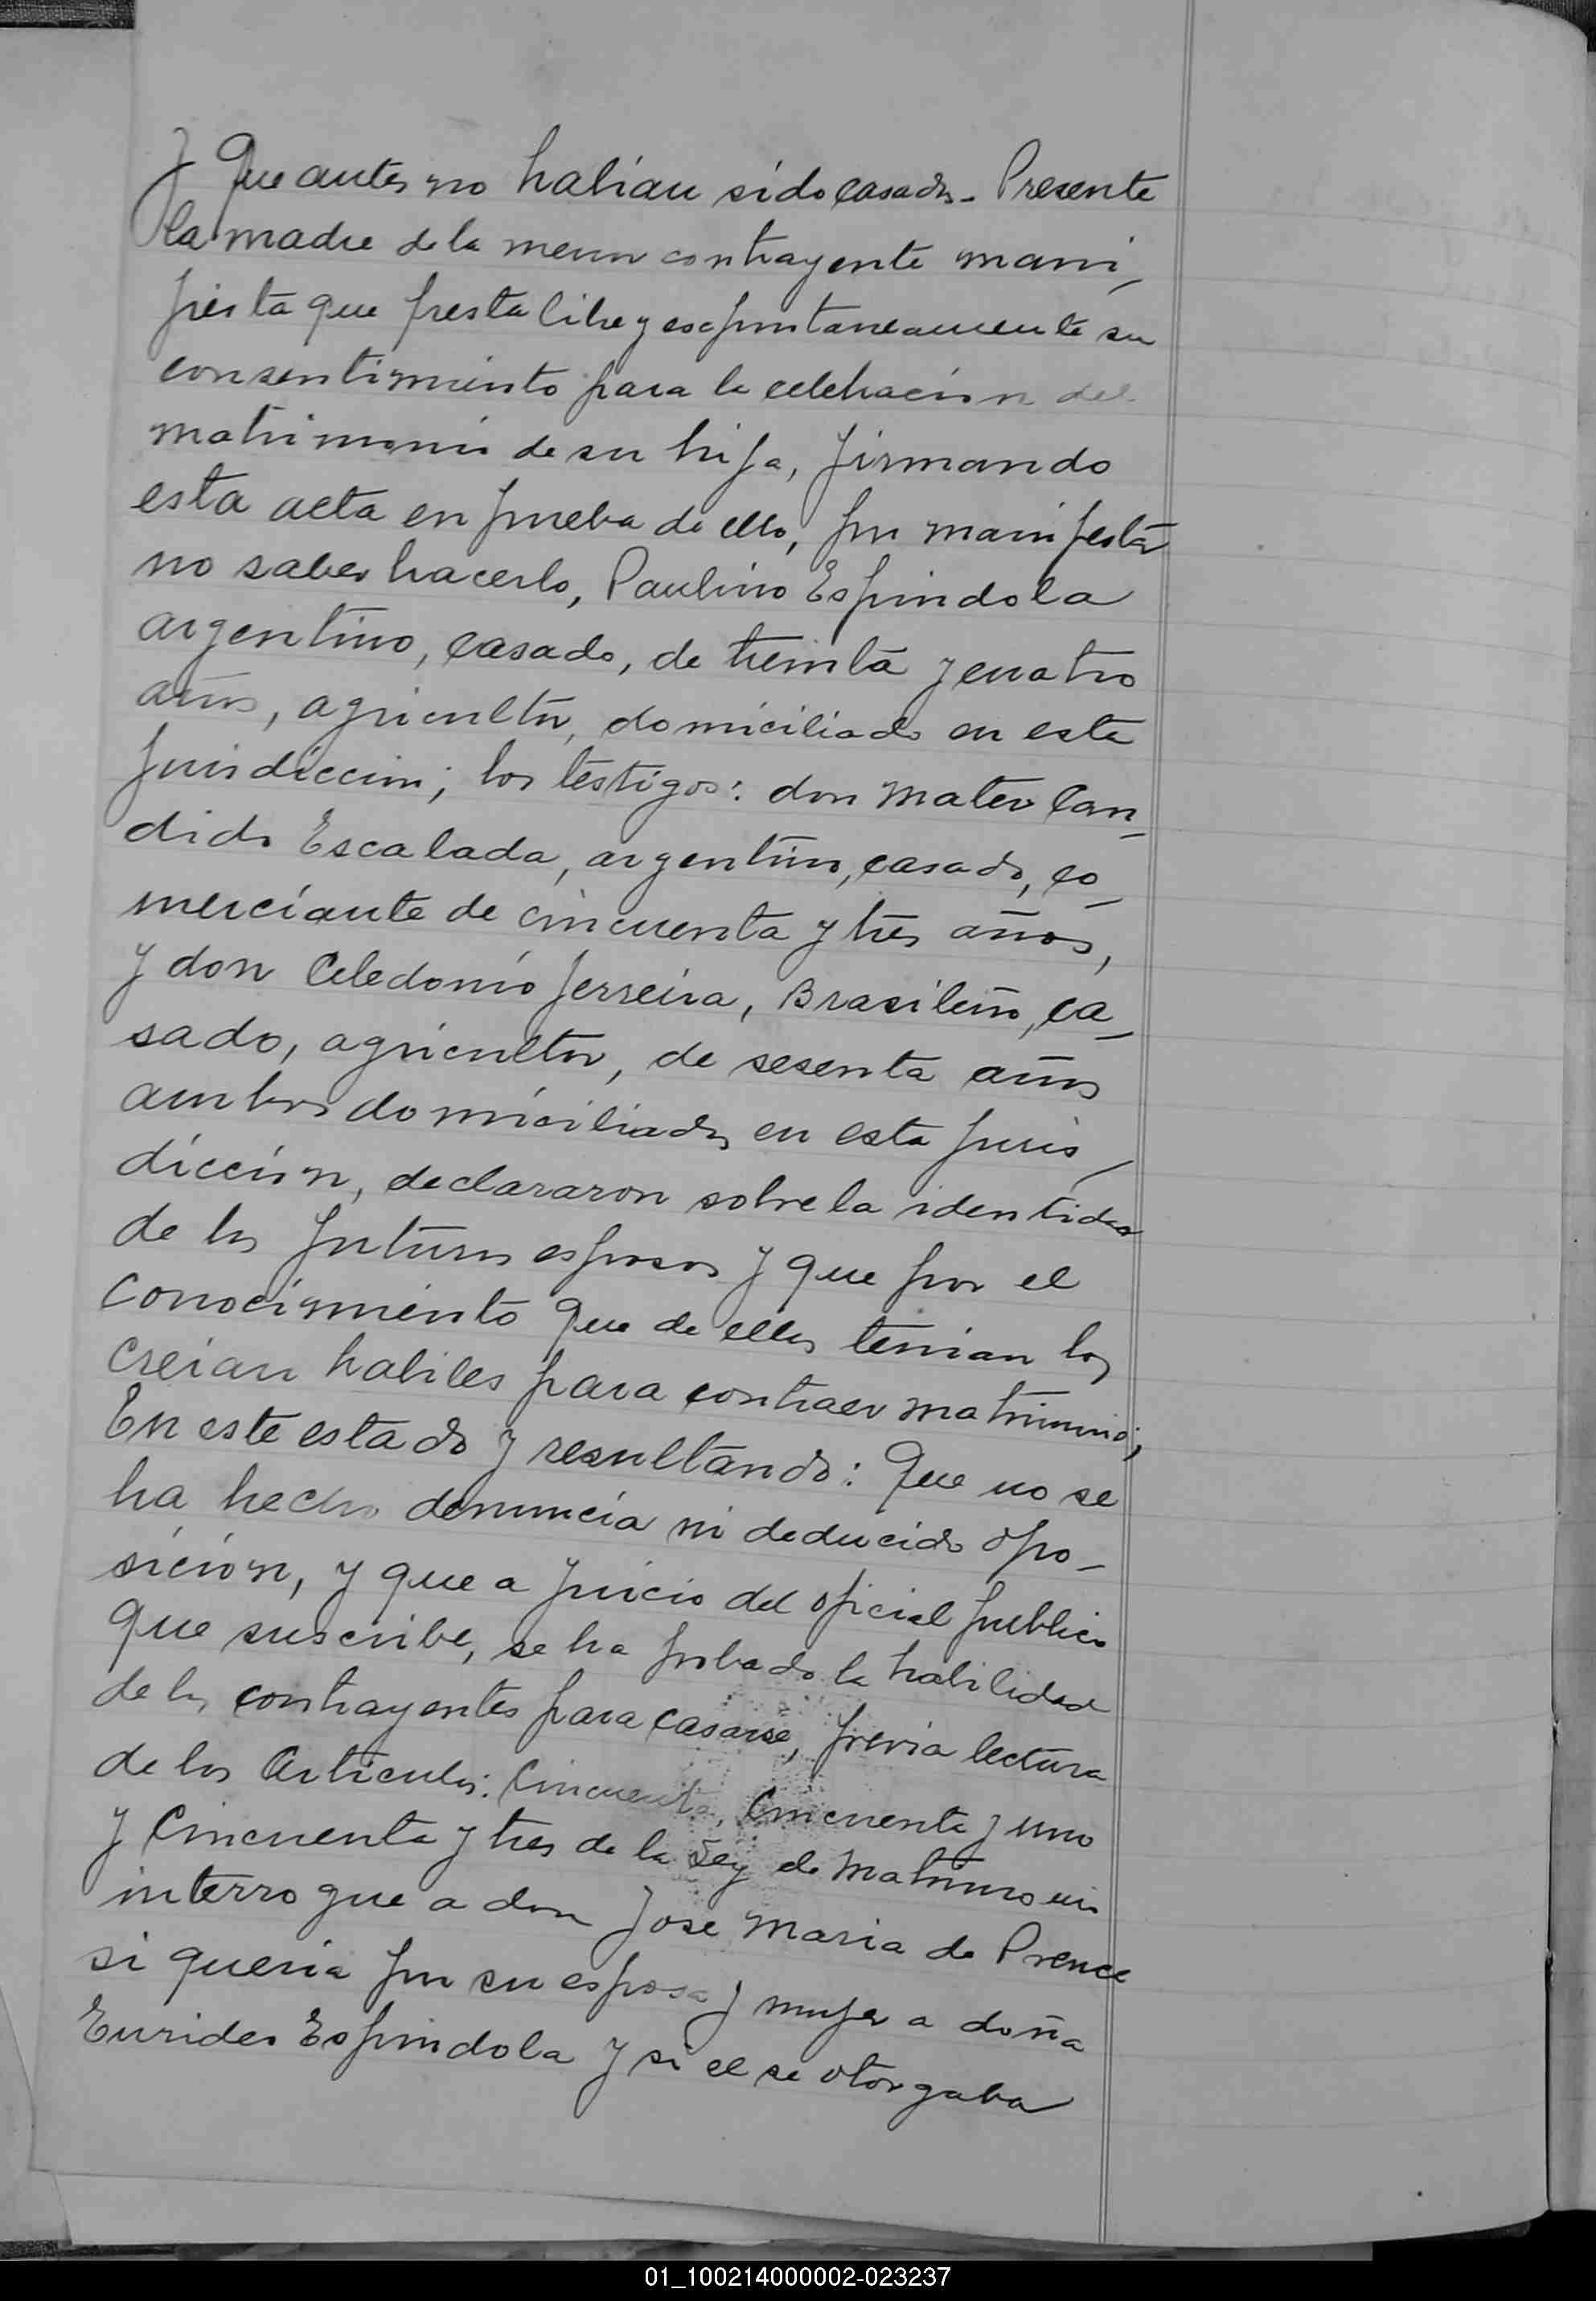 y Que antes no habian sido casados - Presente
la madre de la menor contrayente mani-
fiesta que presta libre y espontaneamente su
consentimiento para la celebracion del
matrimonio de su hija, firmando
esta acta en prueba de ello, por manifestar
no saber hacerlo, Paulino Espindola
argentino, casado, de treinta y cuatro
años, agricultor, domiciliado en esta
jurisdiccion; los testigos: don Mateo Can-
dido Escalada, argentino, casado, co-
merciante de cincuenta y tres años,
y don Celedonio Ferreira, Brasileño, ca-
sado, agricultor, de sesenta años
ambos domiciliados en esta juris-
diccion, declararon sobre la identidad
de los futuros esposos y que por el
conocimiento que de ellos tenian los
creian habiles para contraer matrimonio;
En este estado y resultando: Que no se
ha hecho denuncia ni deducido opo-
sicion, y que a juicio del oficial publico
que suscribe, se ha probado la habilidad
de los contrayentes para casarse, previa lectura
de los Articulos: Cincuenta, Cincuenta y uno
y Cincuenta y tres de la Ley de Matrimonio
interrogue a don Jose Maria de Prence
si queria por su esposa y mujer a doña
Eurides Espindola y si el se otorgaba
01_100214000002-023237